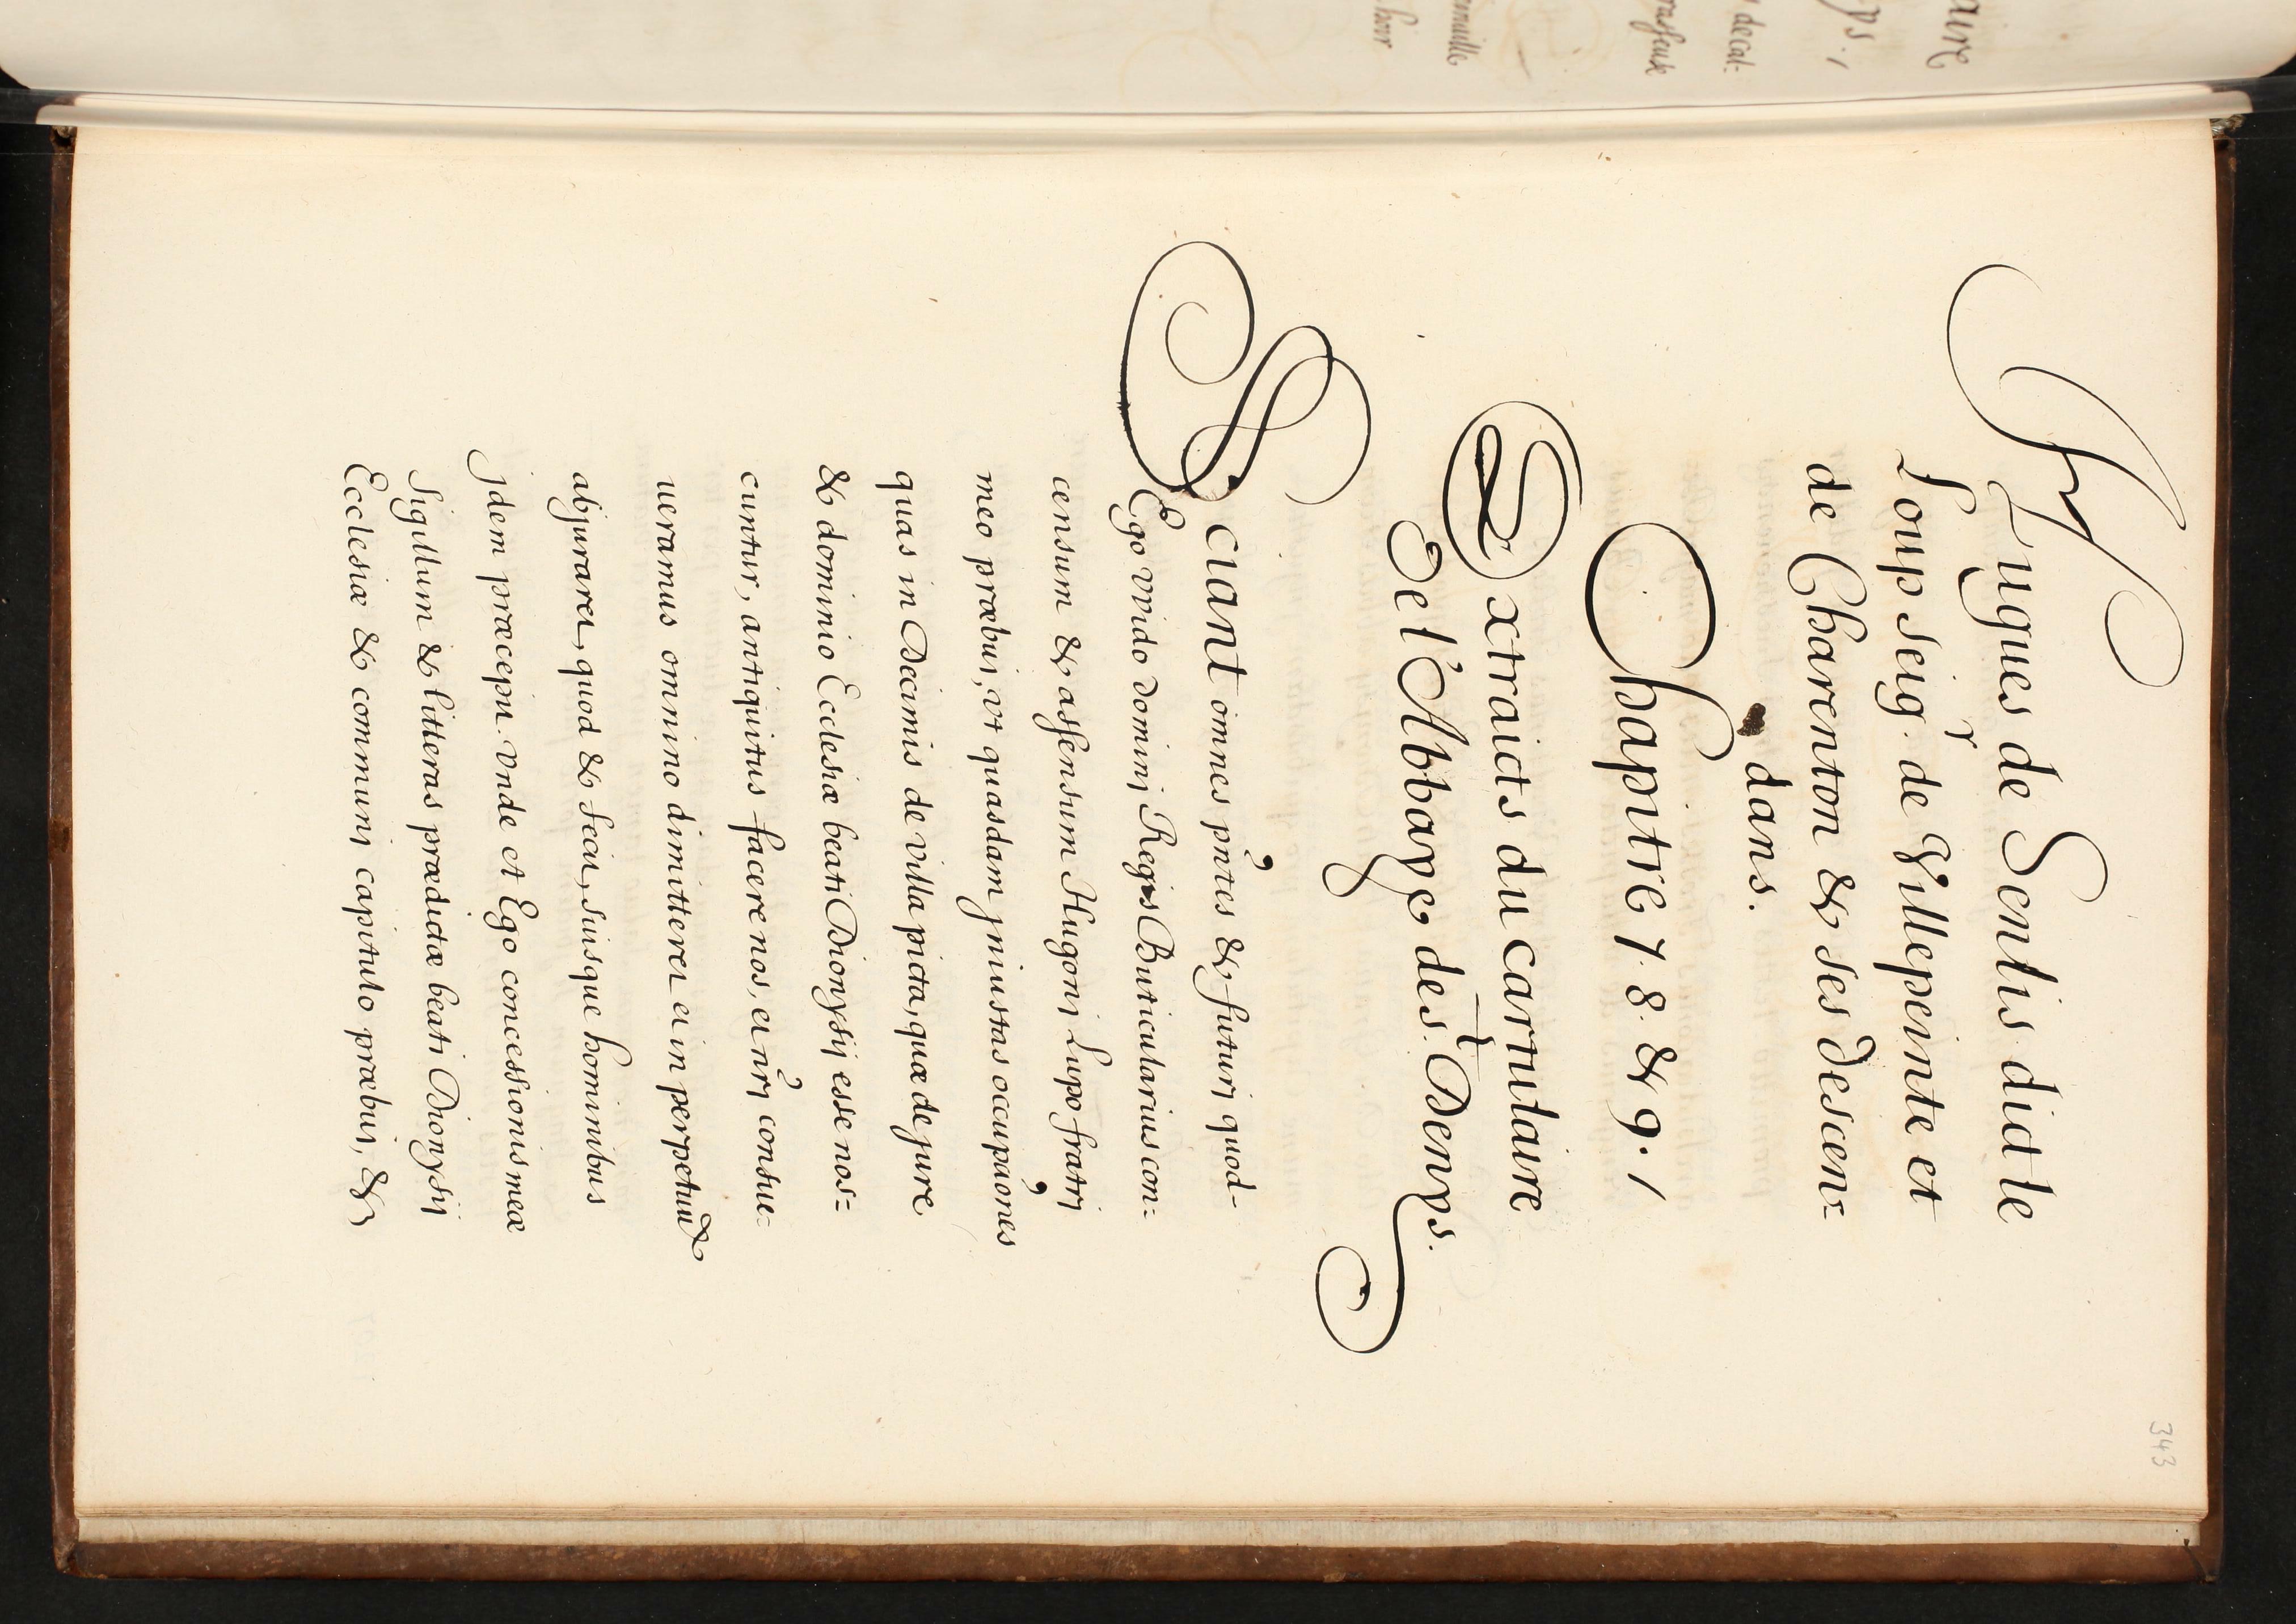 343
Hugues de Senlis dict le
Loup Seig.r de Villepeinte et
de Charenton & ses descen=
dans.
Chapitre 7. 8. & 9. /
Extraicts du cartulaire
De l'Abbaye de St. Denys.
Sciant omnes pn̄tes & futurj quod-
Ego vvido dominj Regis Buticularius con=
censum & assensum Hugonj Lupo fratrj
meo præbui, vt quasdam jniustas occupaōnes
quas in Decimis de villa picta, quæ de jure
& dominio Ecclesiæ beati Dionysij esse nos=
cuntur, antiquitus facere nos, et nr̄j consue=
ueramus omnino dimitteret et in perpetuū
abjuraret, quod & fecit, suisque hominibus
jdem præcepit. vnde et Ego concessionis meæ
sigillum & litteras prædictæ beati Dionysij
Ecclesiæ & communj capitulo præbui, &